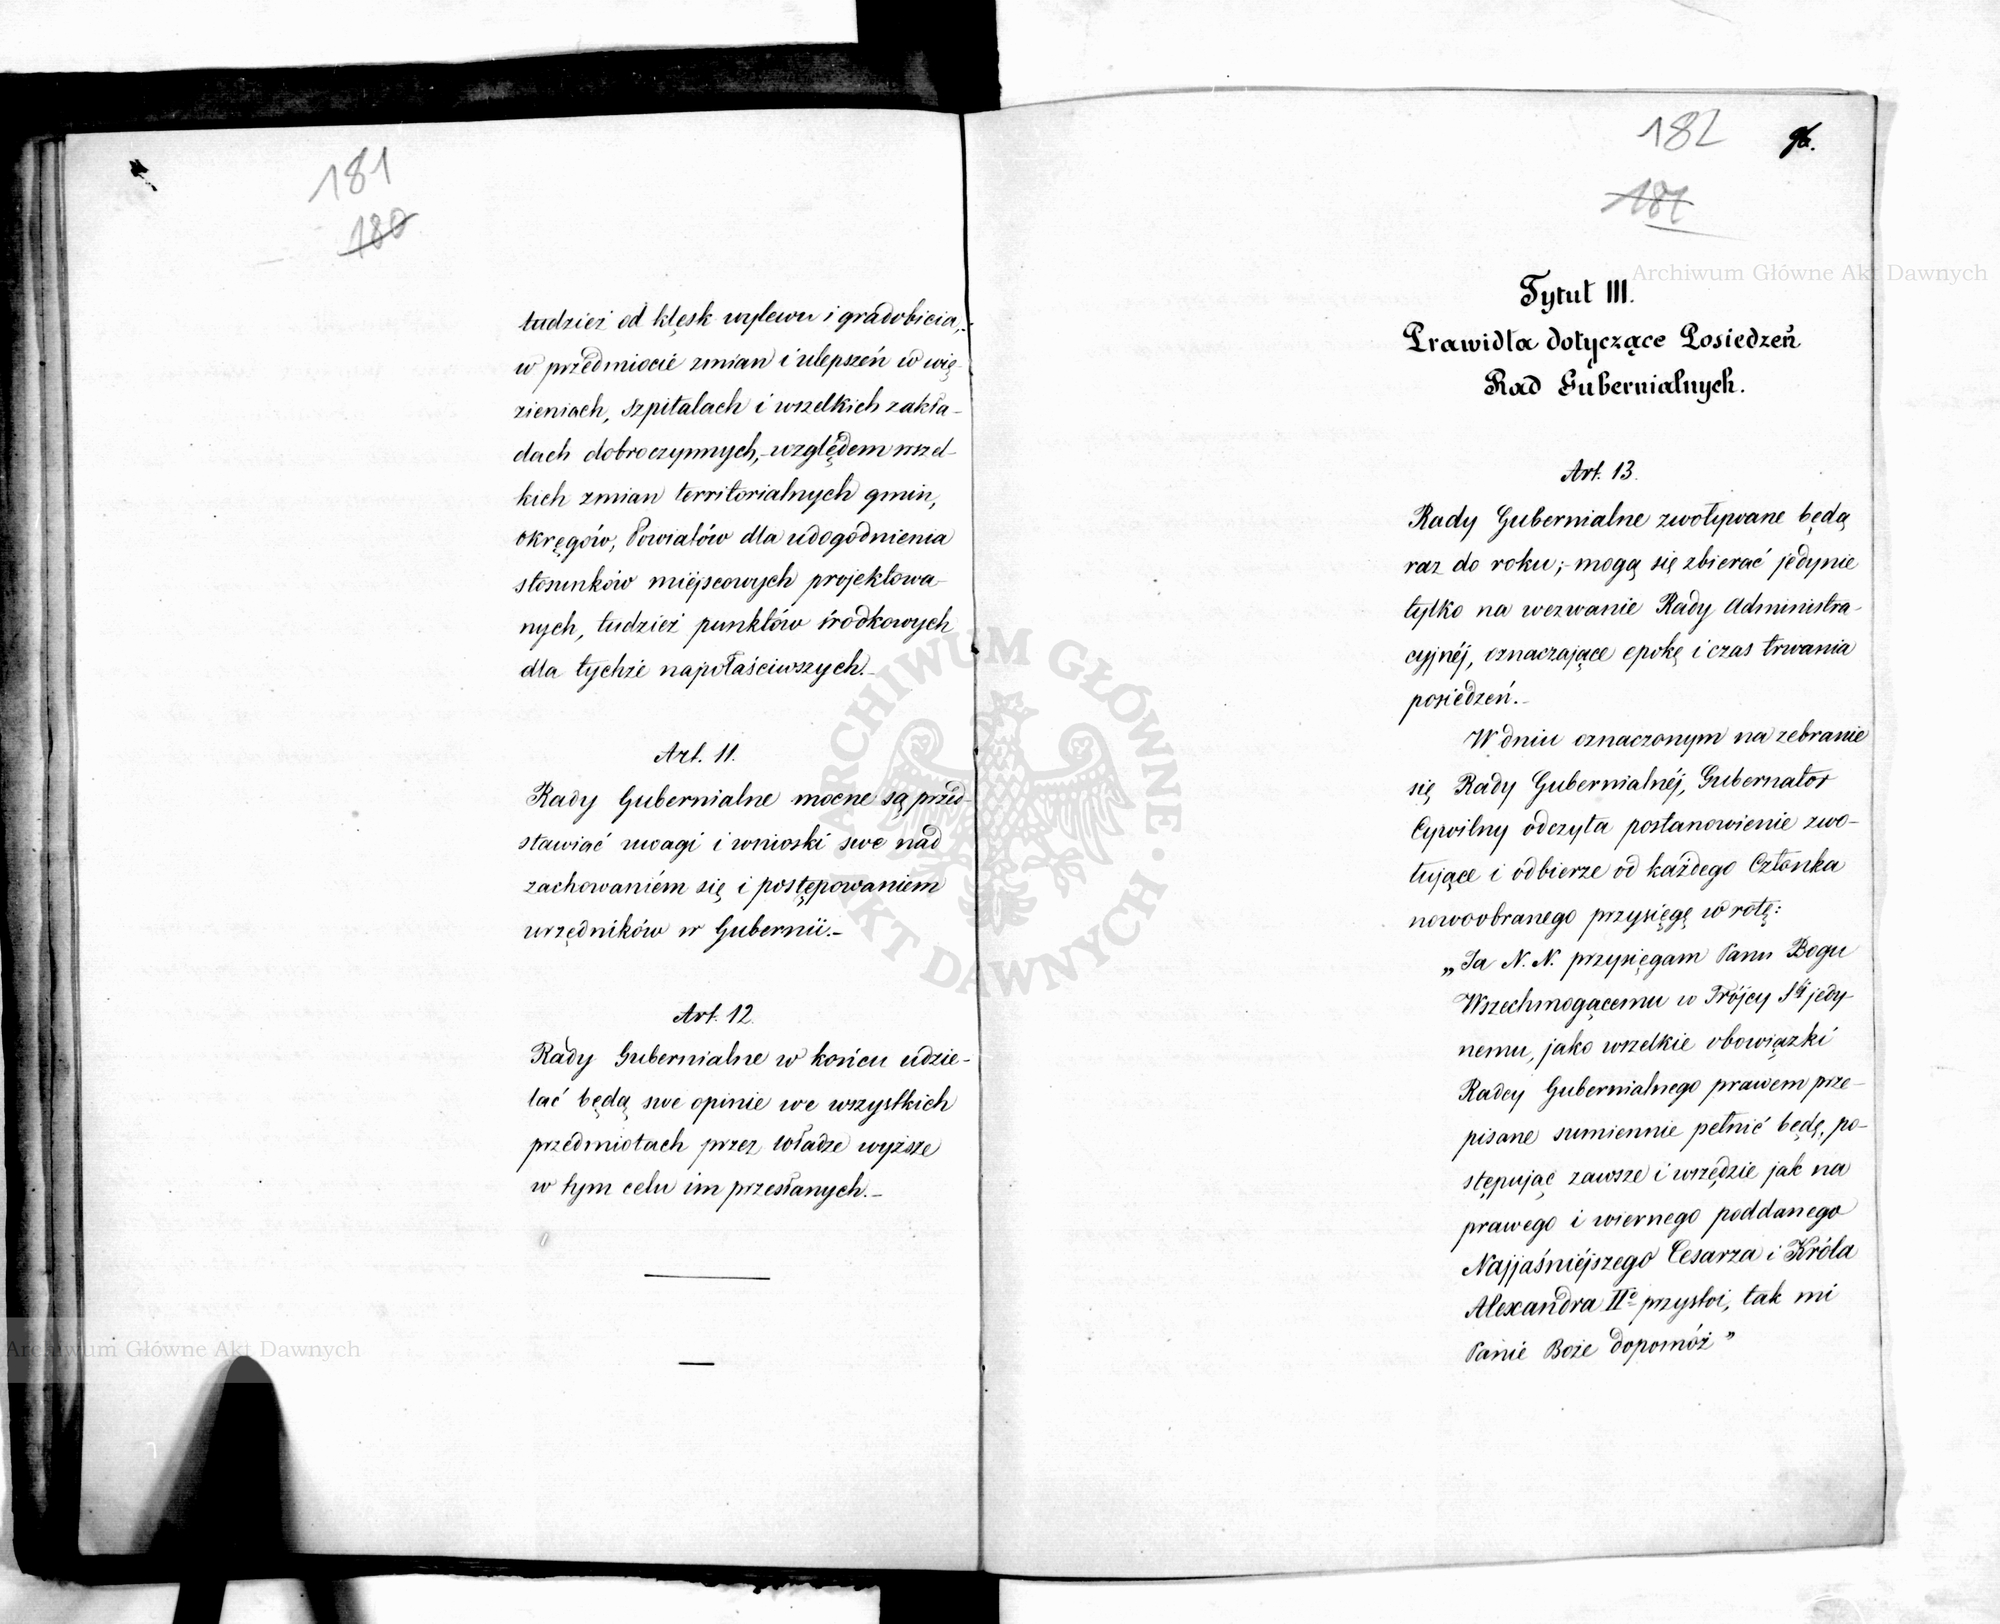 181
180
tudzież od klęsk wylewu i gradobicia,
w przedmiocie zmian i ulepszeń w wię-
zieniach, szpitalach i wszelkich zakła-
dach dobroczynnych, względem wszel-
kich zmian territorialnych gmin,
okręgów, Powiatów dla udogodnienia
stosunków miejscowych projektowa-
nych, tudzież punktów środkowych
dla tychże najwłaściwszych.-
Art. 11.
Rady Gubernialne mocne są przed-
stawiać uwagi i wnioski swe nad
zachowaniém się i postępowaniem
urzędników w Gubernii.-
Art. 12.
Rady Gubernialne w końcu udzie-
lać będą swe opinie we wszystkich
przedmiotach przez Władze wyższe
w tym celu im przesłanych.-
182
96.
181
Tytuł III.
Prawidła dotyczące Posiedzeń
Rad Gubernialnych.
Art. 13.
Rady Gubernialne zwoływane będą
raz do roku;- mogą się zbierać jedynie
tylko na wezwanie Rady Administra-
cyjnéj, oznaczające epokę i czas trwania
posiedzeń.-
W dniu oznaczonym na zebranie
się Rady Gubernialnéj, Gubernator
Cywilny odczyta postanowienie zwo-
łujące i odbierze od każdego Członka
nowoobranego przysięgę w rotę:
„Ja N. N. przysięgam Panu Bogu
Wszechmogącemu w Trójcy Sej jedy-
nemu, jako wszelkie obowiązki
Radcy Gubernialnego prawem prze-
pisane sumiennie pełnić będę, po-
stępując zawsze i wszędzie jak na
prawego i wiernego poddanego
Najjaśniéjszego Cesarza i Króla
Alexandra IIo przystoi, tak mi
Panie Boże dopomóż”
Archiwum Główne Akt Dawnych
ARCHIWUM GŁÓWNE AKT DAWNYCH
Archiwum Główne Akt Dawnych